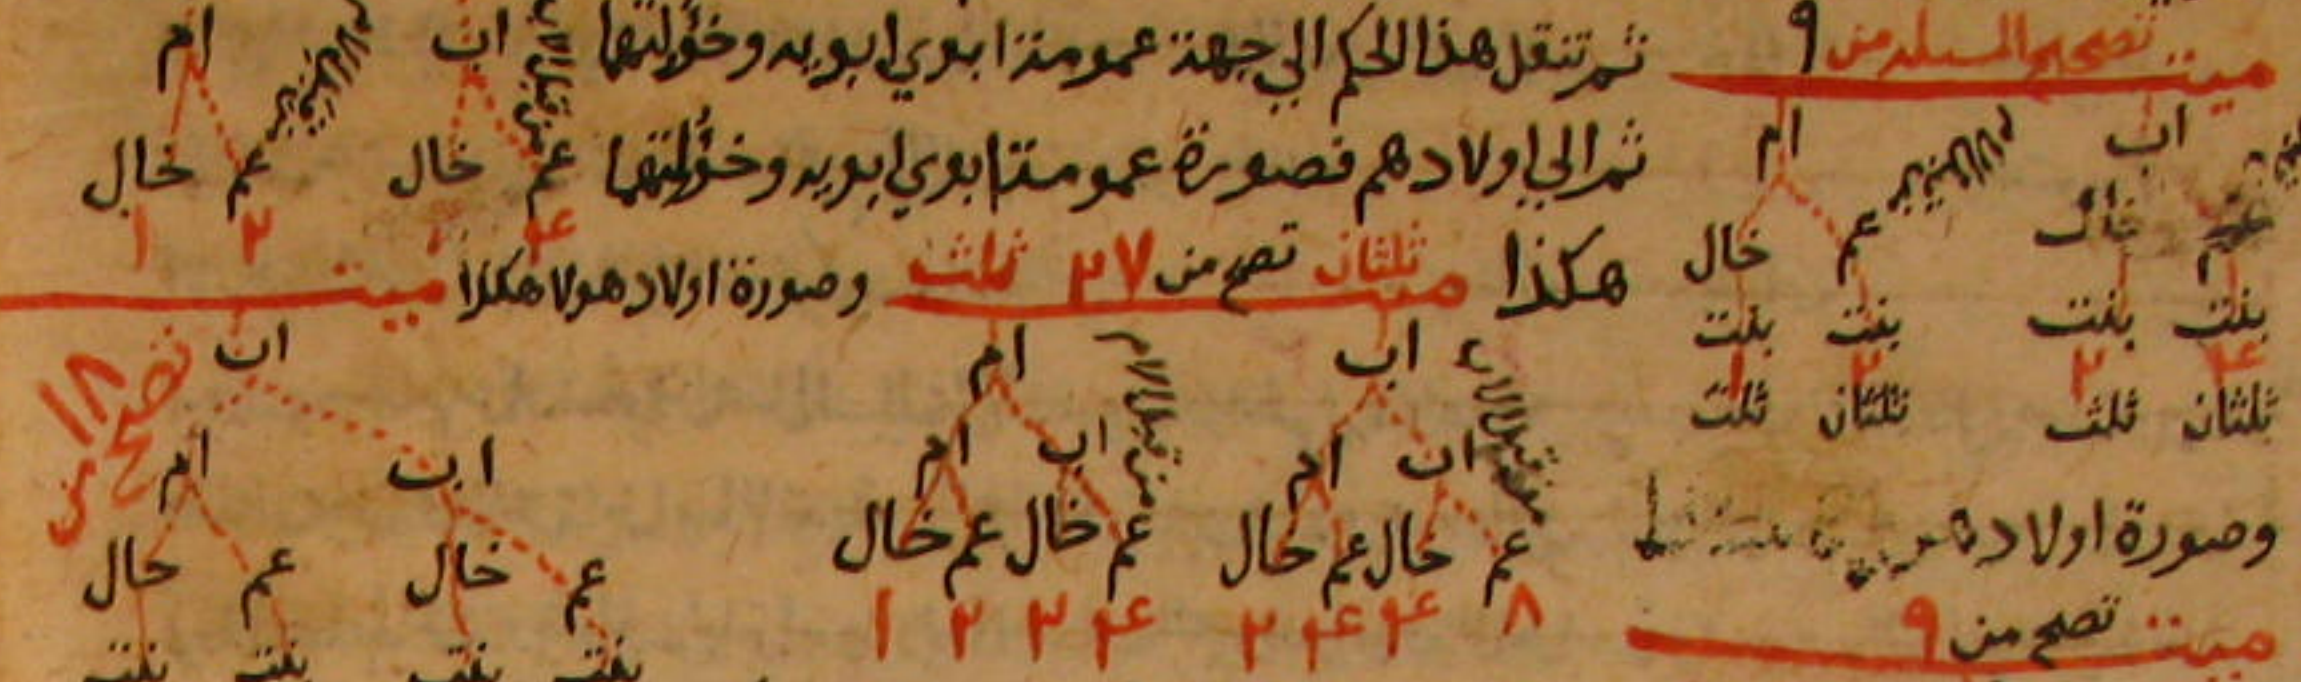 تصحيح المسئلة من ٩
ميت
اب
ام
خال
عم
خال
بنت بنت بنت بنت
٤ ٢ ٢ ١
ثلثان ثلث ثلثان ثلث
وصورة اولادهم
ميت تصح من ٩
ثم تنقل هذا الحكم الي جهة عمومة ابوي ابويه وخؤلتهما
ثم الي اولادهم فصورة عمومة ابوي ابويه وخؤلتهما
هكذا
ميت ثلثان تصح من ٢٧ ثلث
اب ام
من قبل الام
اب ام اب ام
عم خال عم خال عم خال عم خال
٨ ٤ ٤ ٢ ٤ ٢ ٢ ١
وصورة اولاد هولا هكذا
اب ام
عم خال عم خال
٤ ٢ ١
ميت
اب
تصح من ١٨
اب ام
عم خال عم خال
بنت بنت بنت بنت